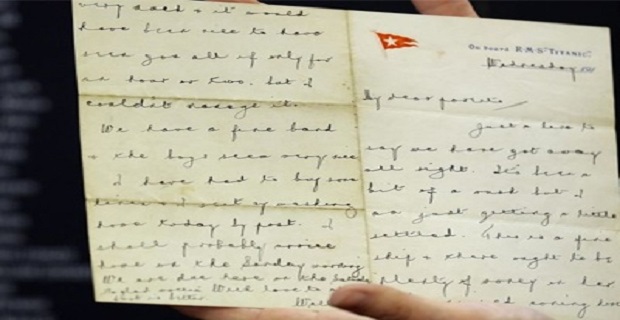 ON BOARD R.M.S. "TITANIC".
Wednesday
My dear parents,
Just a line to
say we have got away
all right. It's been a
bit of a rush but I
am just getting a little
settled. This is a fine
ship & there ought to be
plenty of money on her
missed coming home
very much & it would
have been nice to have
seen you all if only for
an hour or two, but I
couldn't manage it.
We have a fine band
& the boys seem very nice
I have had to buy some
linen & I sent my washing
home today by post. I
shall probably arrive
home on the Sunday morning
We are due here on the
glad With love to
foot is better